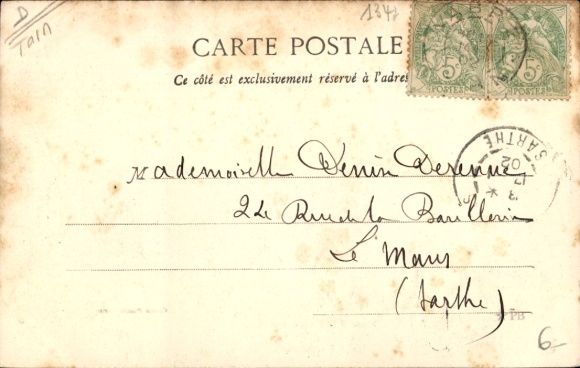 D
TAIN
1347
CARTE POSTALE
Ce côté est exclusivement réservé à l'adres
5c 5c
POSTES POSTES
SARTHE
02
Mademoiselle Denise Derenne
22 Rue de la Barillerie
Le Mans
(Sarthe)
PB
6-